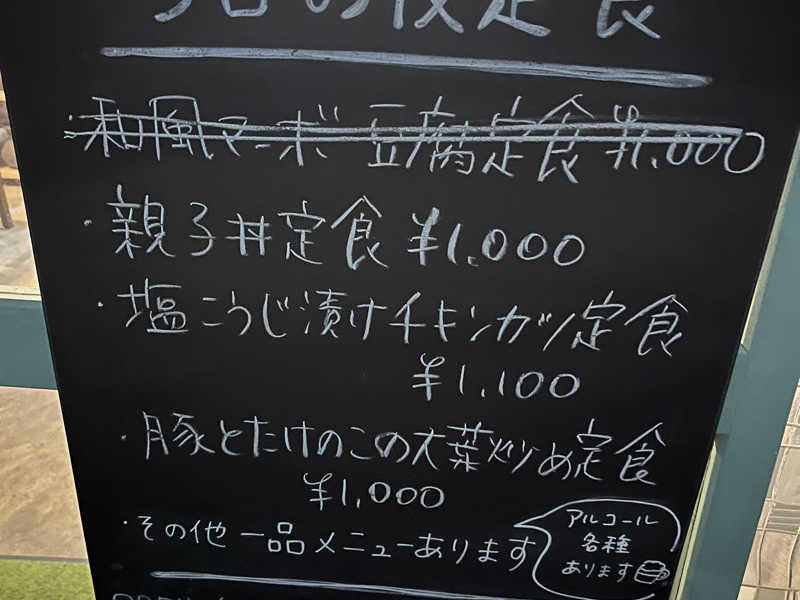 今日の夜定食
・和風マーボ豆腐定食 ¥1,000
・親子丼定食 ¥1,000
・塩こうじ漬けチキンカツ定食
¥1,100
・豚とたけのこの大葉炒め定食
¥1,000
・その他一品メニューあります
アルコール
各種
あります